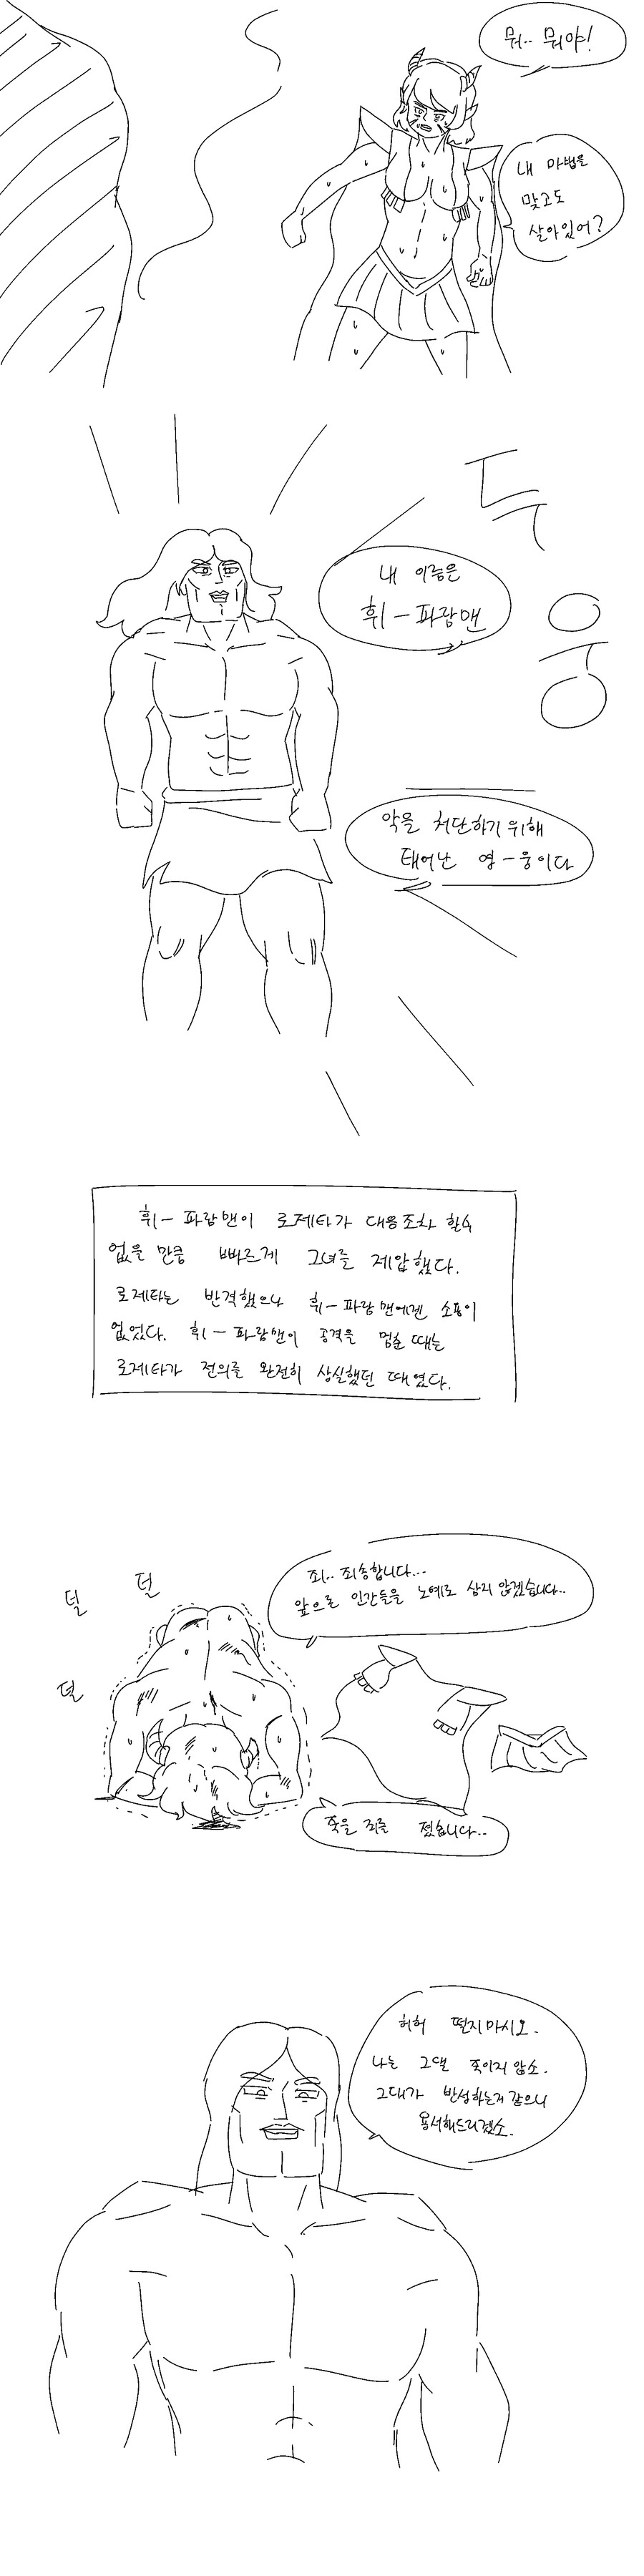 뭐.. 뭐야!
내 마법을
맞고도
살아있어?
두
웅
내 이름은
휘-파람맨
악을 처단하기 위해
태어난 영-웅이다
휘-파람맨이 로제타가 대응조차 할수
없을 만큼 빠르게 그녀를 제압했다.
로제타는 반격했으나 휘-파람맨에겐 소용이
없었다. 휘-파람맨이 공격을 멈춘 때는
로제타가 전의를 완전히 상실했던 때였다.
덜
덜
덜
죄.. 죄송합니다...
앞으로 인간들을 노예로 삼지 않겠습니다..
죽을 죄를 졌습니다..
허허 떨지마시오.
나는 그댈 죽이지 않소.
그대가 반성하는거 같으니
용서해드리겠소.